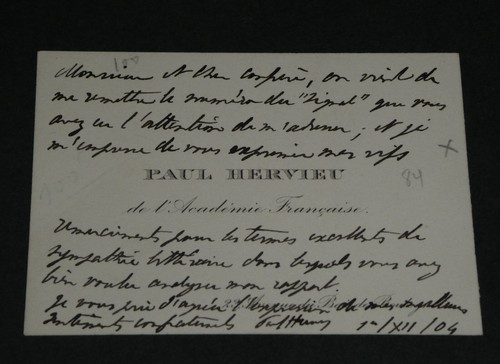 100
Monsieur et cher confrère, on vient de
me remettre le numéro du "Signal" que vous
avez eu l'attention de m'adresser ; et je
m'empresse de vous exprimer mes vifs
X
PAUL HERVIEU
84
100
de l'Académie Française.
remerciements pour les termes excellents de
sympathie littéraire dans lesquels vous avez
bien voulu analyser mon rapport.
Je vous prie d'agréer l'expression de mes meilleurs
sentiments confraternels Paul Hervieu 1er/XII/04